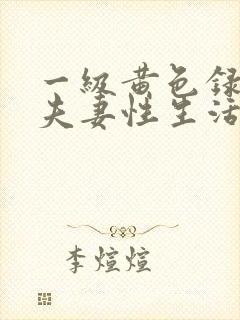 一级黄色録
夫妻性生活
李煊煊